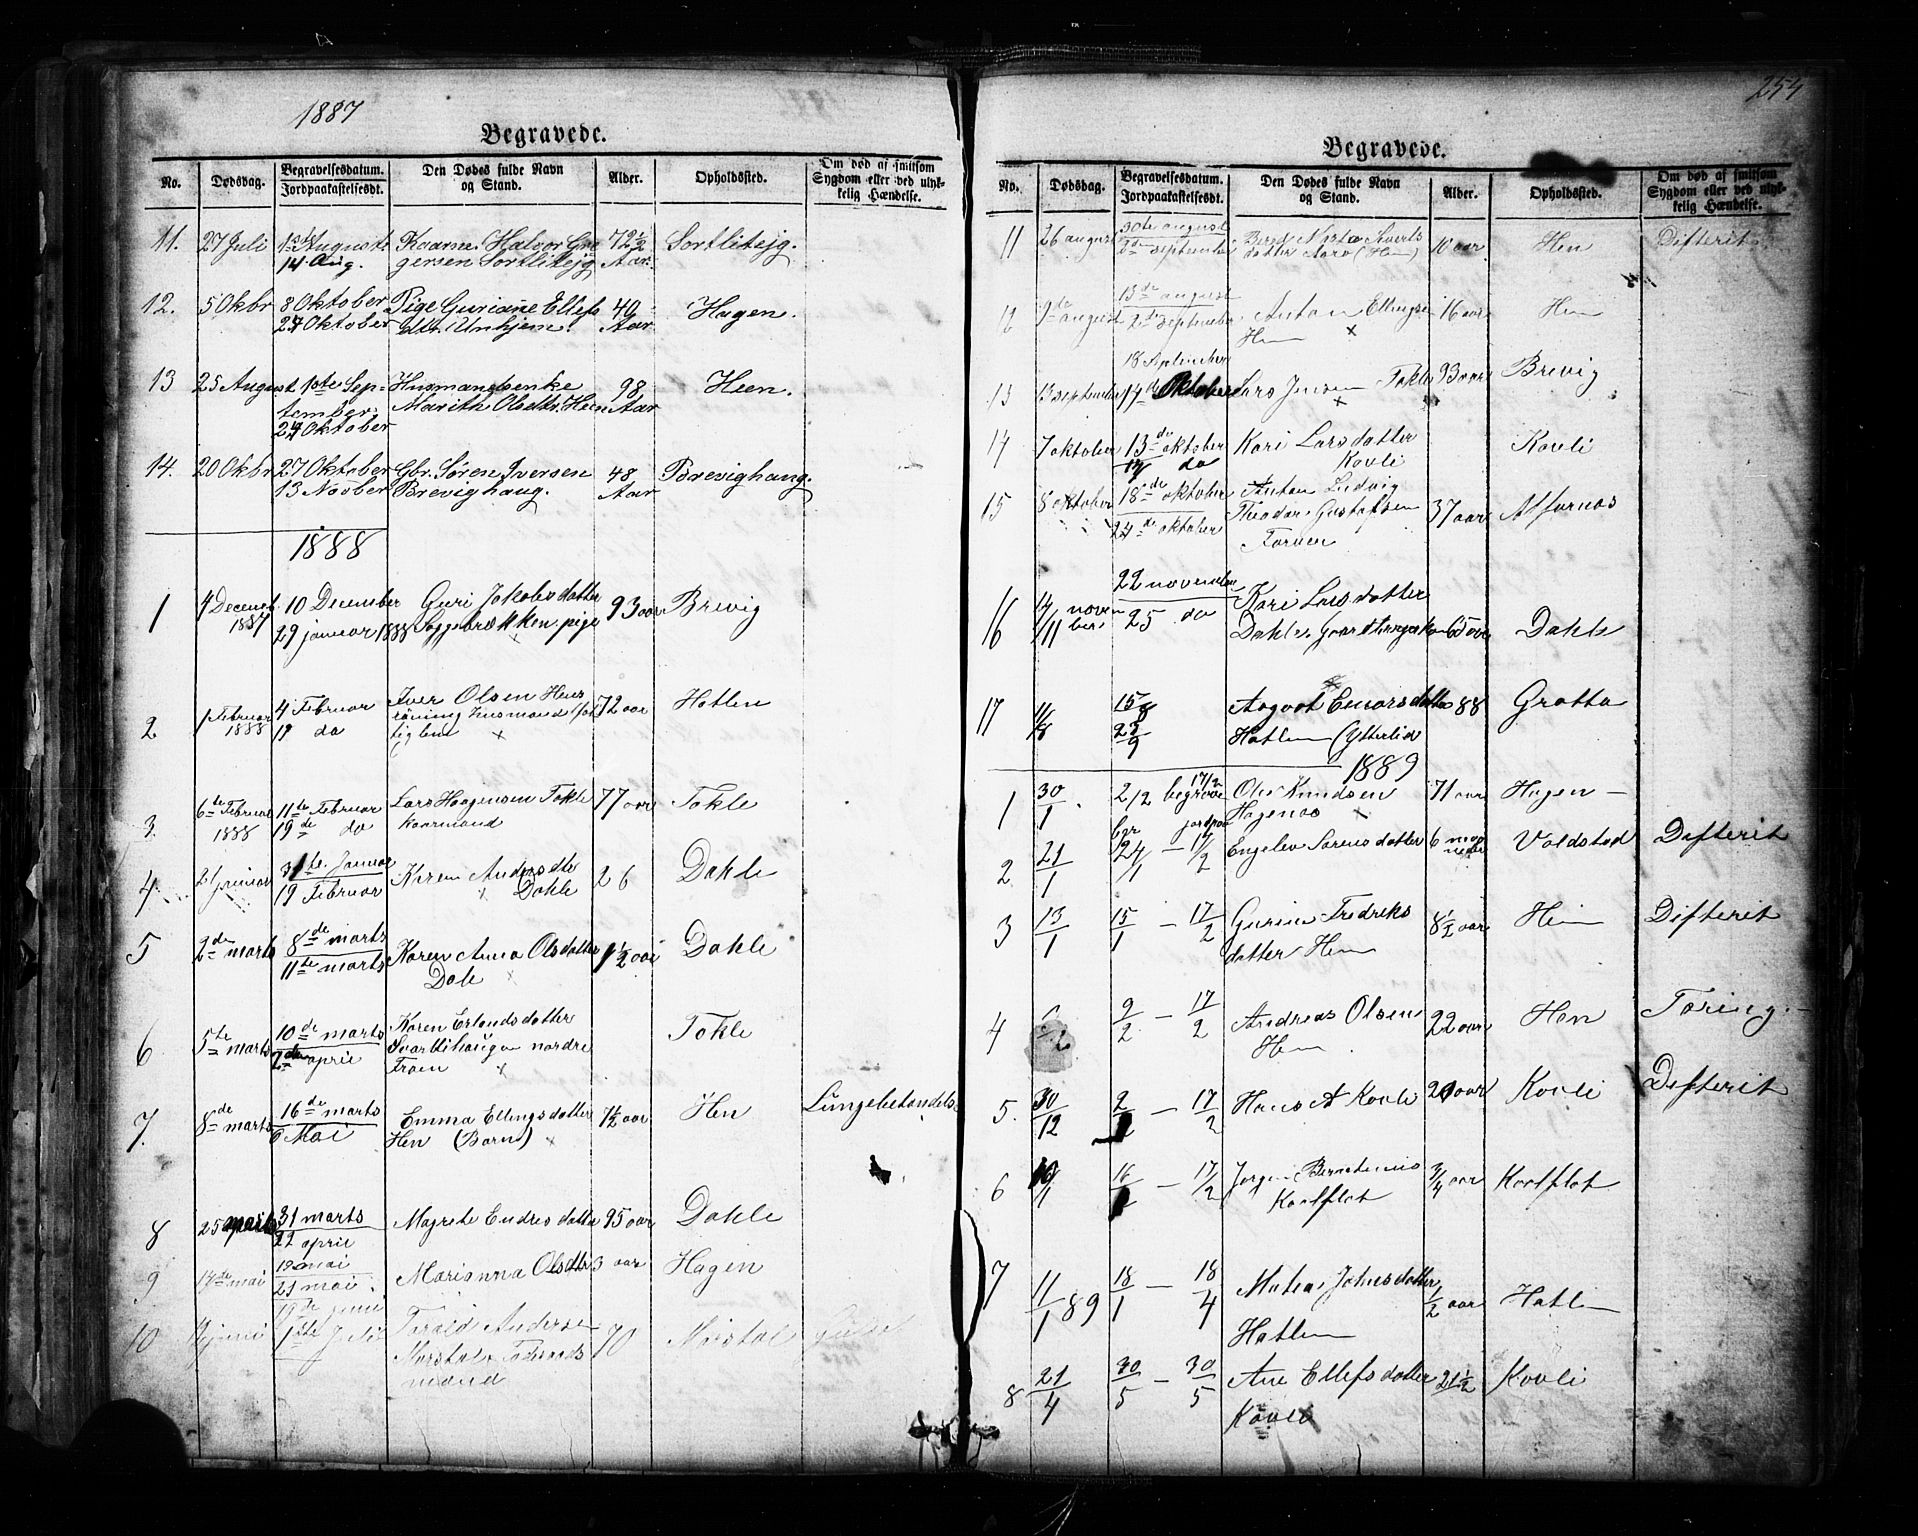 1887
Begravede.
No.
Dødsdag.
Begravelsesdatum.
Jordpaakastelsesdt.
Den Dødes fulde Navn
og Stand.
Alder.
Opholdssted.
Om død af smitsom
Sygdom eller ved ulyk-
kelig Hændelse.
11. 27 Juli 1ste Auguste Kaarm. Halvor Gre 72 1/2 Sortlitejg.
14 Aug. gersen Sortlitejg Aar.
12. 5 Okbr 8 Oktober Pige Guriane Ellefs 40 Hagen.
27 Oktober dtr. Unhjem. Aar
13 25 August 1ste Sep- Husmandsenke 98 Heen.
tember. Marith Olsdtr. Heen Aar
27 Oktober
14. 20 Okbr 27 Oktober Gbr. Søren Iversen 48 Brevighaug.
13 Novber Brevighaug. Aar
1888
1 4 Decemb. 10 December Guri Jakobsdatter 93 aar Brevig
1887 29 januar 1888 Soggebrækken pige
2 1 Februar 4 Februar Iver Olsen Hens 72 aar Hatlen
1888 19 do øuing husmand
3. 6te Februar 11te Februar Lars Haagensen Tokle 77 aar Tokle
1888 19de do kaarmand
4 21 januar 31te Januar Karen Andersdtr 26 Dahle
19 Februar Dahle
5 2de marts 8de marts Karen Anna Olsdatter 1 1/2 aar Dahle
11te marts Dale
6 5te marts 10de marts Karen Erlandsdatter Tokle
2de april Svartihaugen nordre
Fraen
7. 8de marts 16de marts Emma Ellingsdatter 1 1/2 aar Hen Lungebetændelse
6 Mai Hen (Barn)
8 25 marts 31 marts Magrete Endresdatter 95 aar Dahle
22 april
9 14de mai 19 mai Marianna Olsdtr 3 aar Hagen
21 mai
10 juni 19de juni Tarald Andersen 70 Morstal
1ste Juli Morstal
mand
254
Begravede.
No.
Dødsdag.
Begravelsesdatum.
Jordpaakastelsesdt.
Den Dødes fulde Navn
og Stand.
Alder.
Opholdssted.
Om død af smitsom
Sygdom eller ved ulyk-
kelig Hændelse.
11 26 august 30te august Sverts 10 aar Hen Difterit
2de september datter (Hen)
12 9de august 13de august Anton Ellingse 16 aar Hen
2de september Hen
13 13 september 18 September Lars Jensen Tokle 93 aar Brevig
14de Oktober
14 7 oktober 13de oktober Kari Larsdatter Kavli
14 do Kavli
15 8 oktober 18de oktober Anton Ludvig
24de oktober Theodor Gustafsen 37 aar Alfarnæs
Farver
16 14/11 november 22 november Kari Larsdatter
25 do Dahle. 65 aar Dahle
17 11/8 15/8 Aagoot Einarsdatter 88 Grøtta
23/9 Hatlem (Ytterlid
1889
1 30/1 2/2 begravet 17/2 Ole Knudsen 71 aar Hagen
bgr jordpaa Hagenæs
2 21/1 24/1 - 17/2 Engelev Sørensdatter 6 maaneder Voldstad Difterit
3 13/1 15/1 - 17/2 Gurine Fredriks 8 1/2 aar Hen Difterit
datter Hen
4 2 9/2 - 17/2 Andreas Olsen 22 aar Hen Tæring.
Hen
5. 30/12 2 - 17/2 Hans A Kavli 20 aar Kovli Difterit
6 10/1 16 - 17/2 Jørgen Berntinius 3/4 aar Kavlflat
Kavlflat
7 11/1 89 18/1 - 18/4 Matea Johnsdatter 1/2 aar Hatlen
Hatlem
8 21/4 30/5 - 30/5 Ane Ellefsdatter 21 1/2 Kovli
Kavli